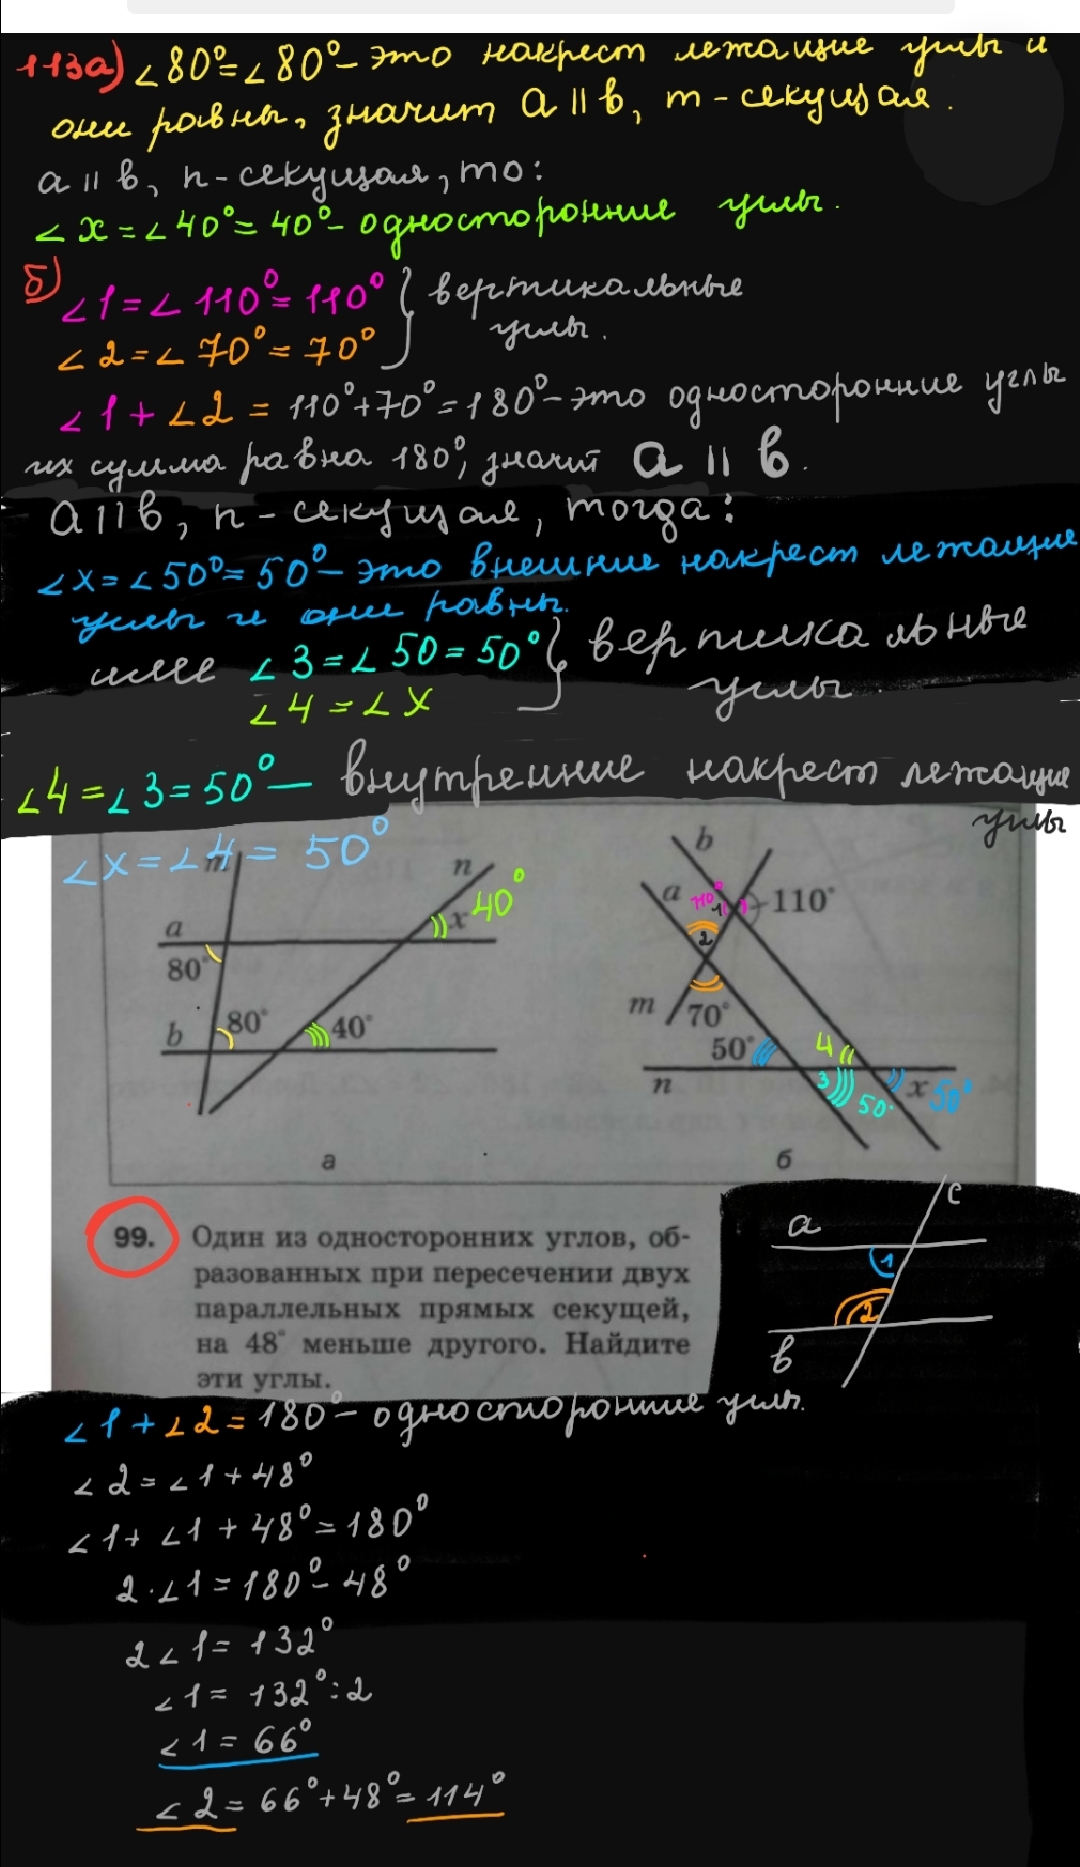 113а) ∠80°=∠80°- это накрест лежащие углы и
они равны, значит a || b, m - секущая.
a || b, n - секущая, то:
∠x = ∠40° = 40° - односторонние углы.
б)
∠1 = ∠110° = 110° } вертикальные
∠2 = ∠70° = 70° углы.
∠1 + ∠2 = 110°+70°=180°- это односторонние углы
их сумма равна 180°, значит a || b.
a || b, n - секущая, тогда:
∠x = ∠50° = 50° - это внешние накрест лежащие
углы и они равны.
или ∠3 = ∠50 = 50° } вертикальные
∠4 = ∠x углы
∠4 = ∠3 = 50° — внутренние накрест лежащие
углы
∠x = ∠4 = 50°
m
n
40°
a
x
80°
b
80°
40°
а
b
a
110°
1
110°
2
m
70°
50°
4
n
3
50°
x
50°
б
99. Один из односторонних углов, об-
разованных при пересечении двух
параллельных прямых секущей,
на 48° меньше другого. Найдите
эти углы.
c
a
1
2
b
∠1 + ∠2 = 180° - односторонние углы.
∠2 = ∠1 + 48°
∠1 + ∠1 + 48° = 180°
2·∠1 = 180° - 48°
2∠1 = 132°
∠1 = 132° : 2
∠1 = 66°
∠2 = 66° + 48° = 114°